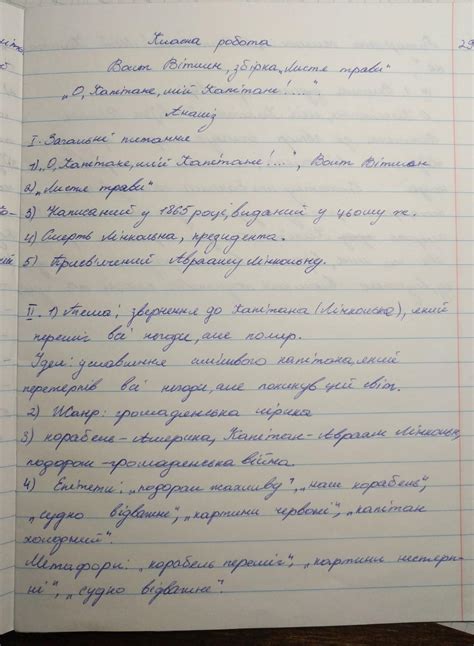 Класна робота
29
Волт Вітмен, збірка „Листя трави"
„О, Капітане, мій Капітане!..."
Аналіз
І. Загальні питання
1) „О, Капітане, мій Капітане!...", Волт Вітмен
2) „Листя трави"
3) Написаний у 1865 році, виданий у цьому ж.
4) Смерть Лінкольна, президента.
5) Присвячений Аврааму Лінкольну.
ІІ. 1) Тема: звернення до Капітана (Лінкольна), який
переміг всі негоди, але помер.
Ідея: уславлення сміливого капітана, який
перетерпів всі негоди, але покинув цей світ.
2) Жанр: громадянська лірика
3) корабель - Америка, Капітан - Авраам Лінкольн,
подорож - громадянська війна.
4) Епітети: „подорож жахливу", „наш корабель",
„судно відважне", „картини червоні", „капітан
холодний".
Метафори: „корабель переміг", „картини нестерп-
ні", „судно відважне".